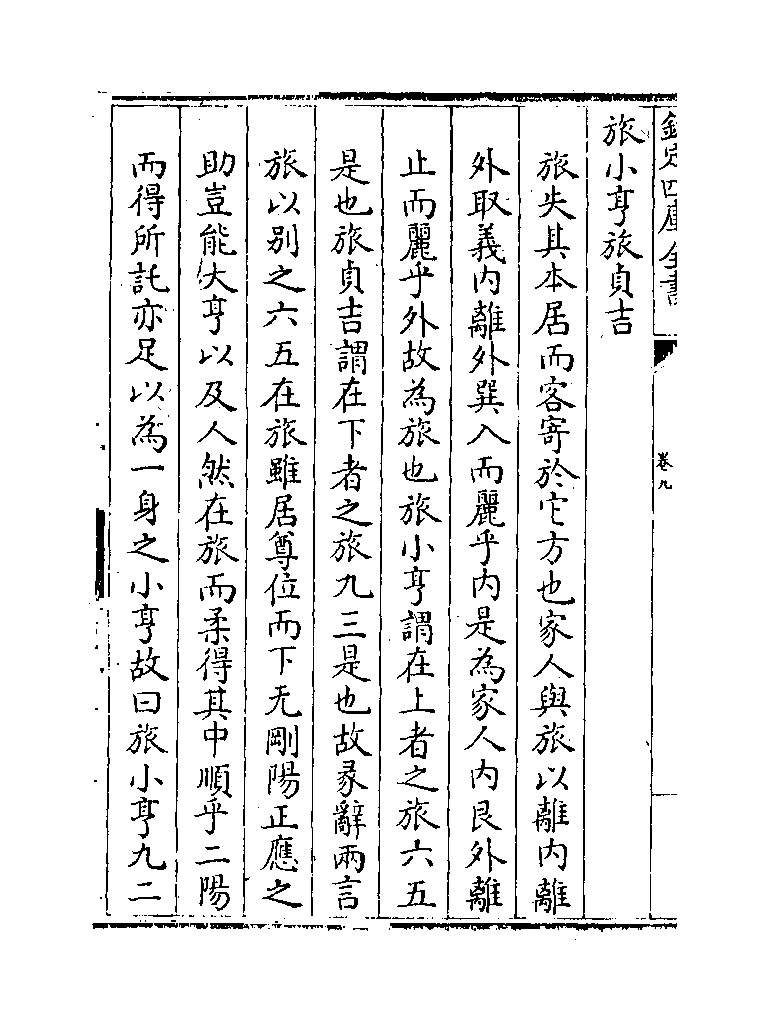 欽定四庫全書
卷九
旅小亨旅貞吉
旅失其本居而客寄於它方也家人與旅以離内離
外取義内離外巽入而麗乎内是為家人内艮外離
止而麗乎外故為旅也旅小亨謂在上者之旅六五
是也旅貞吉謂在下者之旅九三是也故彖辭兩言
旅以别之六五在旅雖居尊位而下无剛陽正應之
助豈能大亨以及人然在旅而柔得其中順乎二陽
而得所託亦足以為一身之小亨故曰旅小亨九二